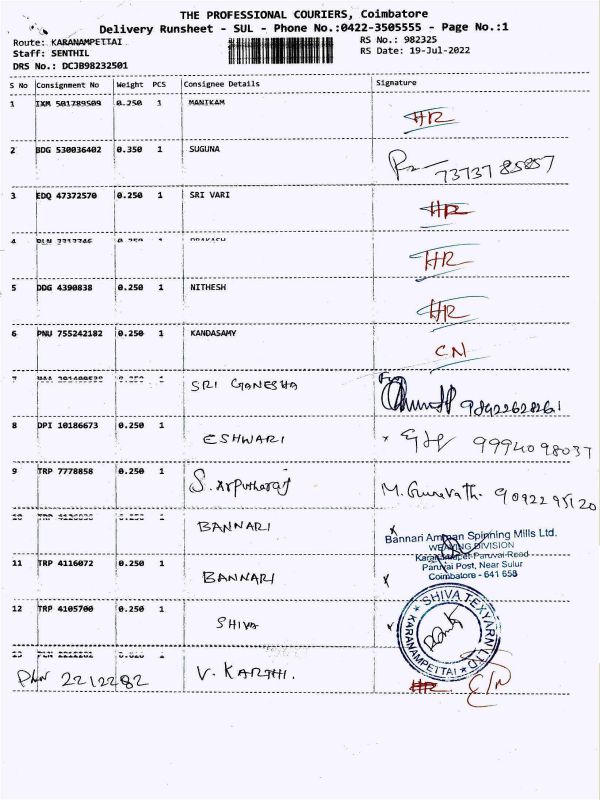 THE PROFESSIONAL COURIERS, Coimbatore
Delivery Runsheet - SUL - Phone No.:0422-3505555 - Page No.:1
Route: KARANAMPETTAI
RS No.: 982325
Staff: SENTHIL
RS Date: 19-Jul-2022
DRS No.: DCJB98232501
S No Consignment No Weight PCS Consignee Details Signature
1 IXM 501789509 0.250 1 MANIKAM HR
2 BDG 530036402 0.350 1 SUGUNA 73737 85857
3 EDQ 47372570 0.250 1 SRI VARI HR
4 1 PRAKASH HR
5 DDG 4390838 0.250 1 NITHESH HR
6 PNU 755242182 0.250 1 KANDASAMY CN
7 1 SRI GANESHA
8 DPI 10186673 0.250 1 ESHWARI 9994098037
9 TRP 7778858 0.250 1 S. Arputharaj M. Gunavath. 9092295120
10 TRP 1 BANNARI
Bannari Amman Spinning Mills Ltd.
WEAVING DIVISION
Karanampet-Paruvai Road
Paruvai Post, Near Sulur
Coimbatore - 641 658
11 TRP 4116072 0.250 1 BANNARI
12 TRP 4105700 0.250 1 SHIVA
SHIVA TEXYARN LTD
KARANAMPETTAI
13 1
PLN 2212282 V. KARTHI. HR